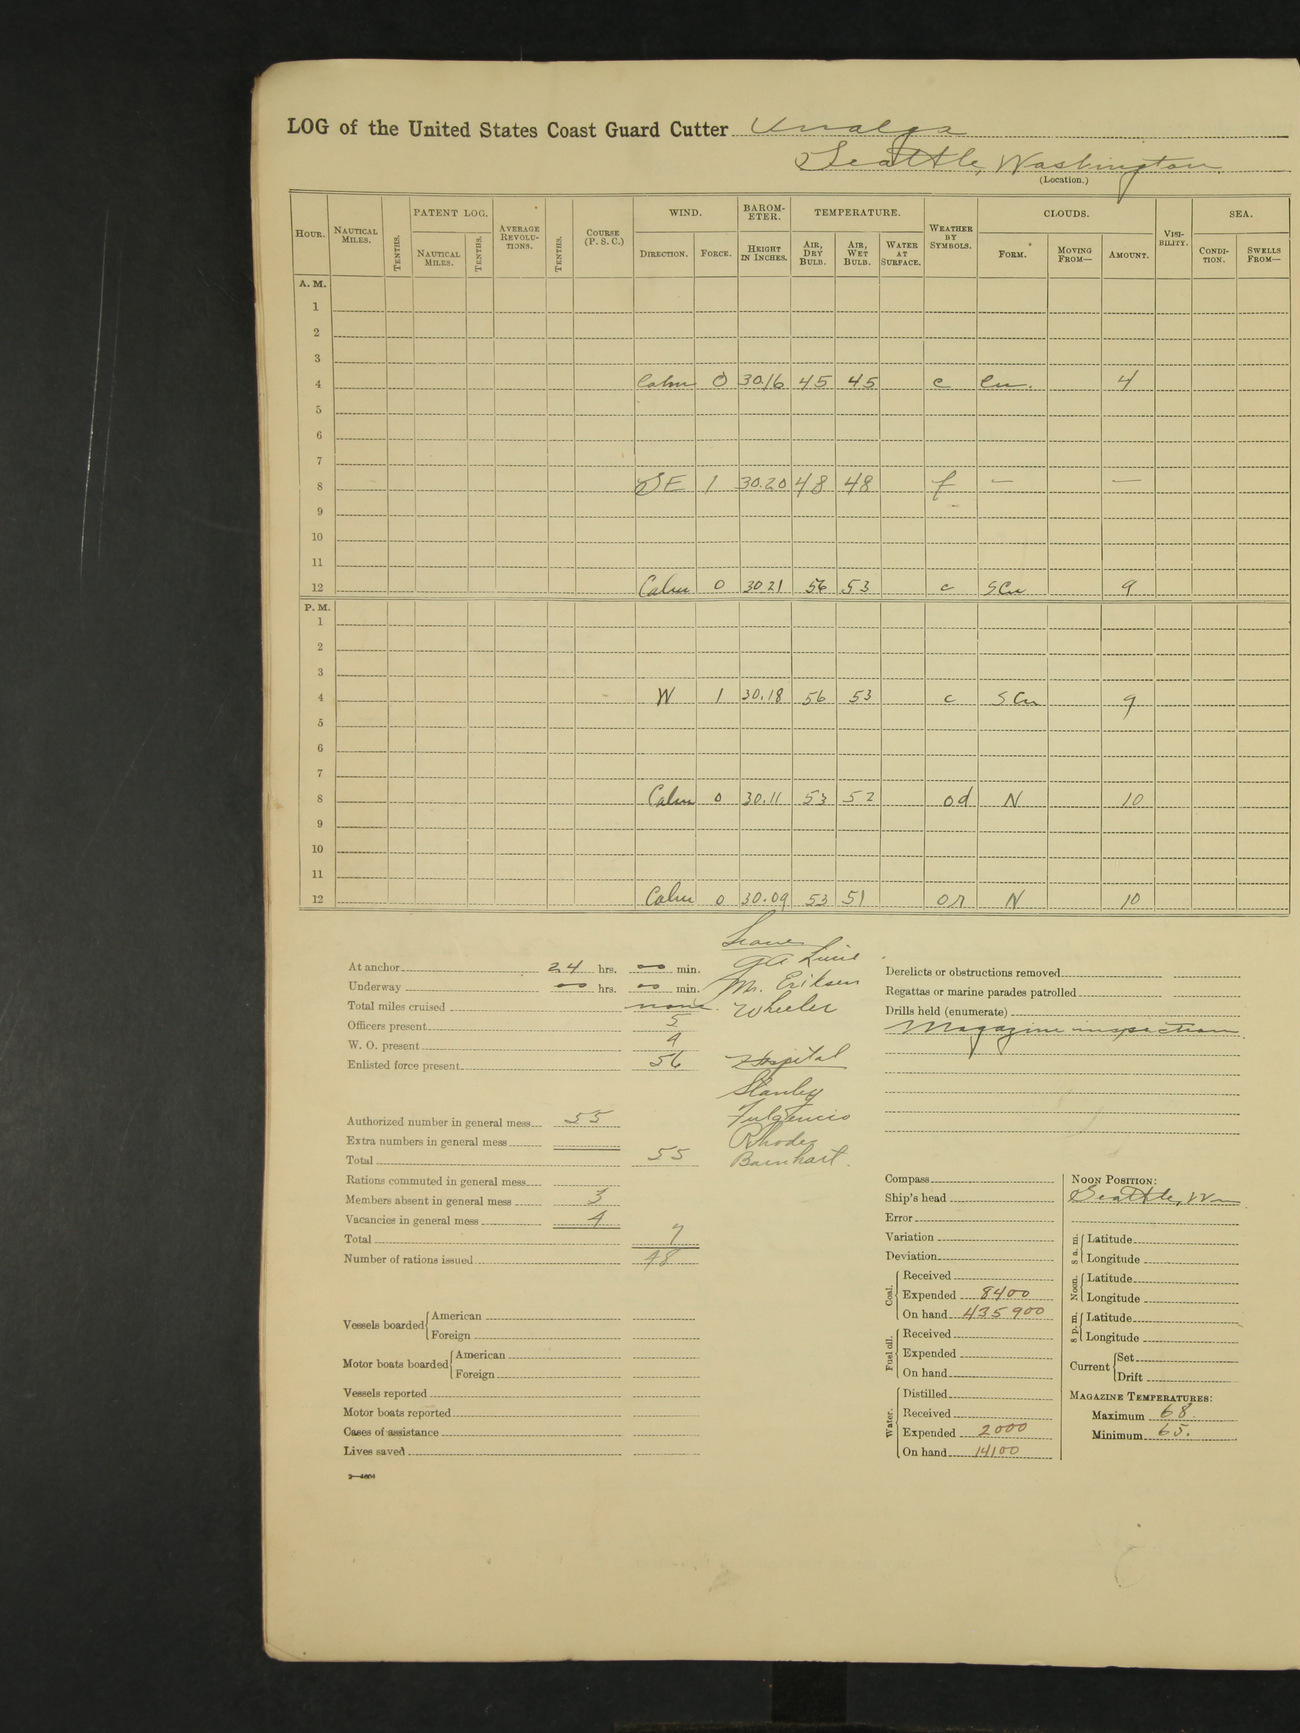 LOG of the United States Coast Guard Cutter Unalga
Seattle, Washington
(Location.)
HOUR. NAUTICAL MILES. TENTHS. PATENT LOG. NAUTICAL MILES. TENTHS. AVERAGE REVOLUTIONS. TENTHS. COURSE (P. S. C.) WIND. DIRECTION. FORCE. BAROMETER. HEIGHT IN INCHES. TEMPERATURE. AIR, DRY BULB. AIR, WET BULB. WATER AT SURFACE. WEATHER BY SYMBOLS. CLOUDS. FORM. MOVING FROM— AMOUNT. VISIBILITY. SEA. CONDITION. SWELLS FROM—
A. M.
1
2
3
4 Calm 0 30.16 45 45 c Cu. 4
5
6
7
8 SE 1 30.20 48 48 f — —
9
10
11
12 Calm 0 30 21 56 53 c SCu 9
P. M.
1
2
3
4 W 1 30.18 56 53 c SCu 9
5
6
7
8 Calm 0 30.11 53 52 od N 10
9
10
11
12 Calm 0 30.09 53 51 or N 10
At anchor 24 hrs. 00 min.
Underway 00 hrs. 00 min.
Total miles cruised none
Officers present 5
W. O. present 4
Enlisted force present 56
Authorized number in general mess 55
Extra numbers in general mess
Total 55
Rations commuted in general mess
Members absent in general mess 3
Vacancies in general mess 4
Total 7
Number of rations issued 48
Vessels boarded American
Foreign
Motor boats boarded American
Foreign
Vessels reported
Motor boats reported
Cases of assistance
Lives saved
2—4604
Leave
Mr. Eriksen
Wheeler
Hospital
Stanley
Fulgencio
Rhodes
Barnhart.
Derelicts or obstructions removed
Regattas or marine parades patrolled
Drills held (enumerate)
Magazine inspection
Compass
Ship's head
Error
Variation
Deviation
Coal. Received
Expended 8400
On hand 435900
Fuel oil. Received
Expended
On hand
Water. Distilled
Received
Expended 2000
On hand 14100
NOON POSITION:
Seattle, Wn
8 a. m. Latitude
Longitude
Noon. Latitude
Longitude
8 p. m. Latitude
Longitude
Current Set
Drift
MAGAZINE TEMPERATURES:
Maximum 68.
Minimum 65.